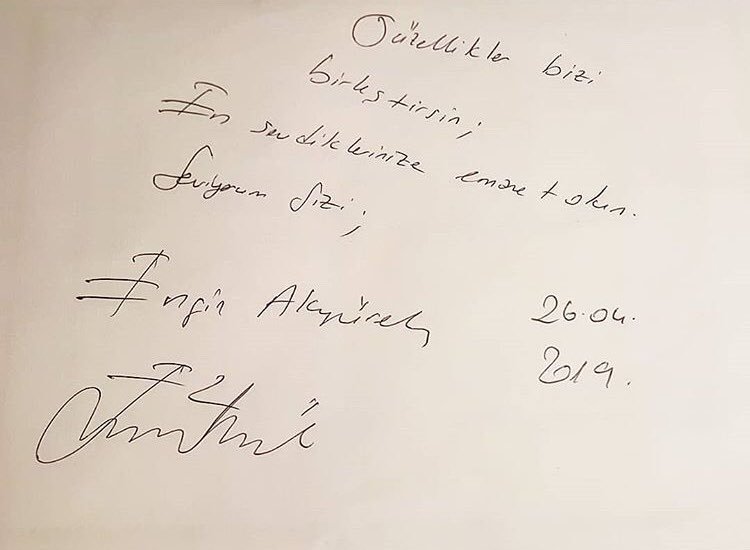 Güzellikler bizi
birleştirsin;
En sevdiklerinize emanet olun.
Seviyorum sizi;
Engin Akyürek
26.04.
2019.